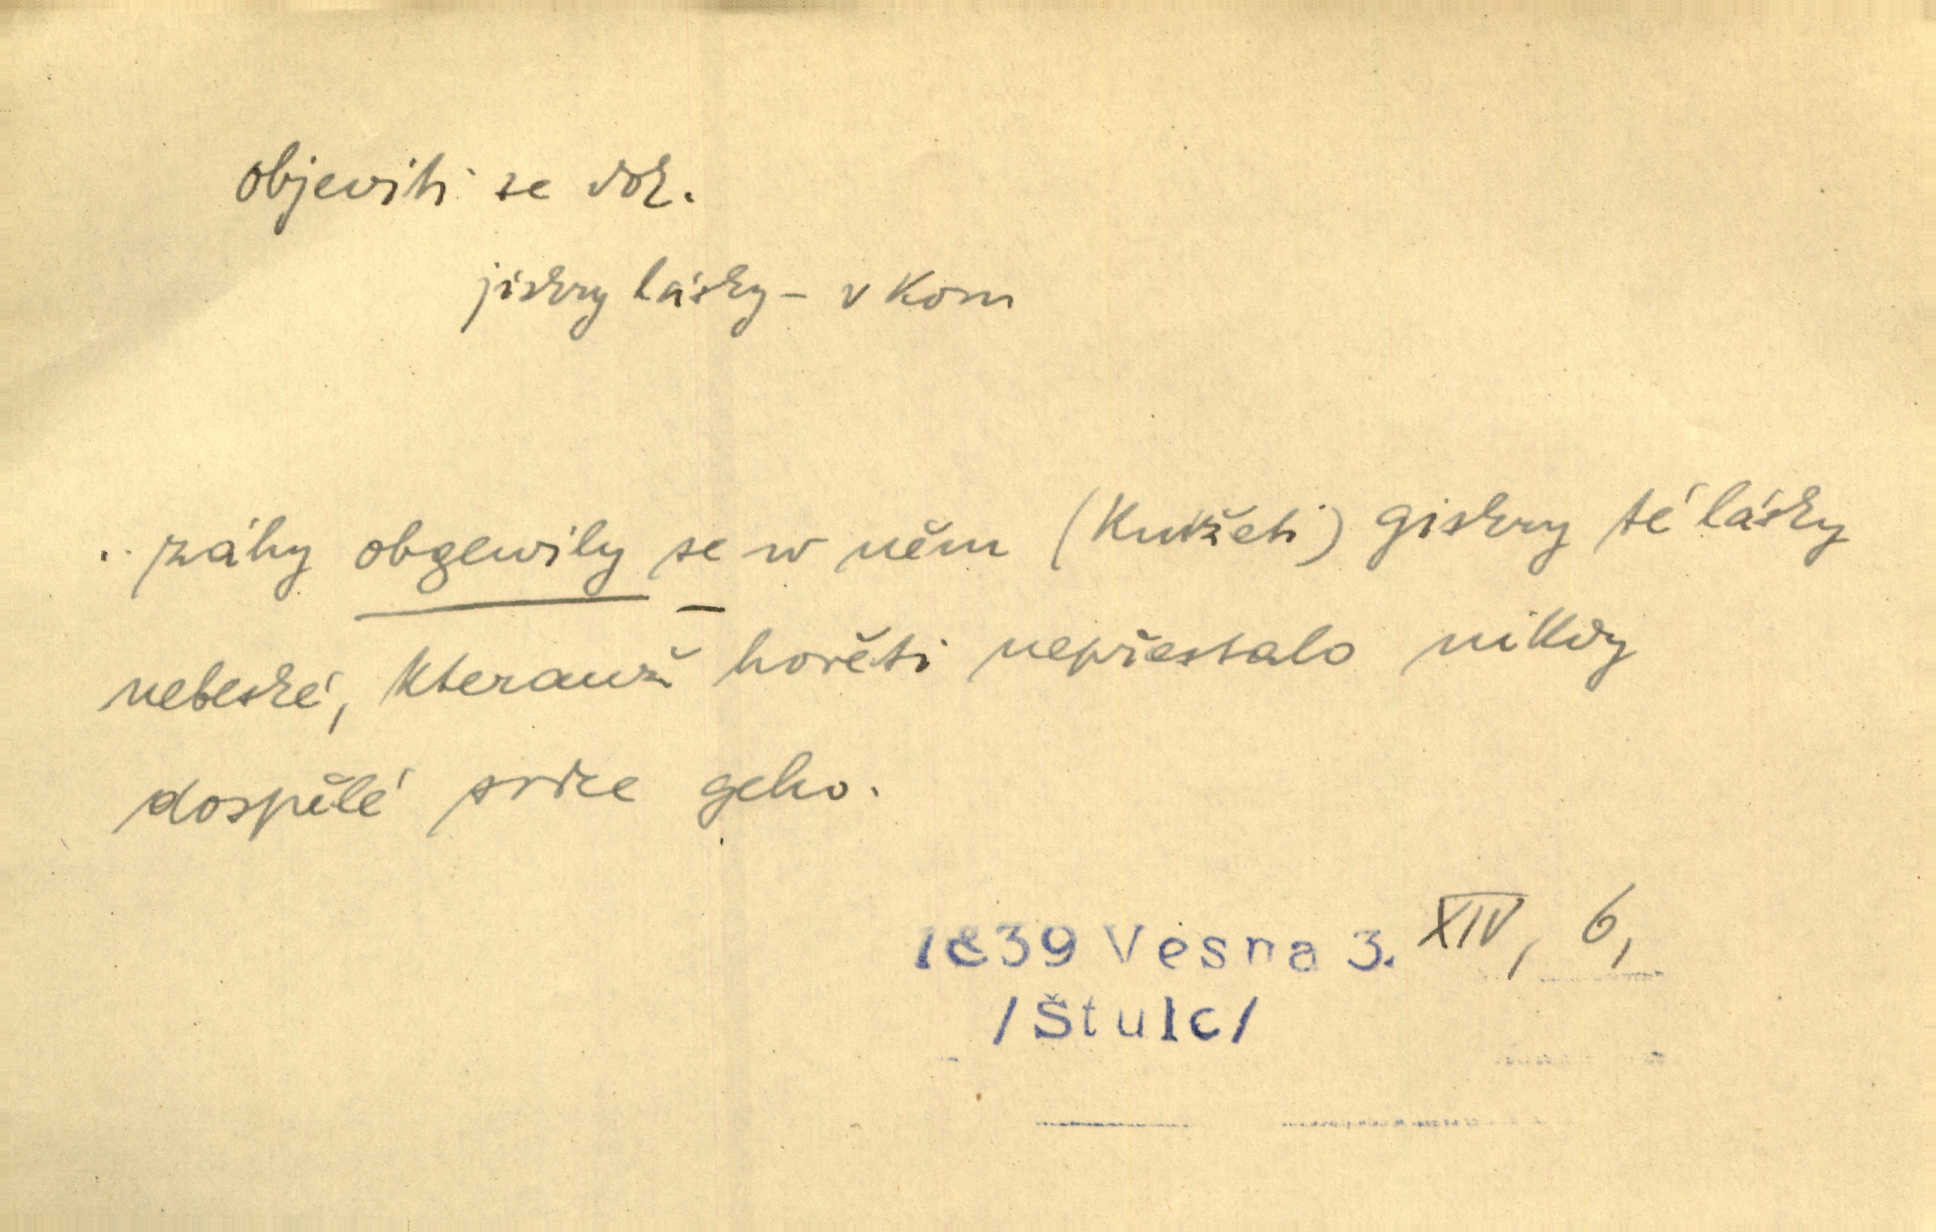 objeviti se dok.
jiskry lásky - v kom
.. záhy obgewily se w něm (Knížeti) giskry té lásky
nebeské, kterauž hořěti nepřestalo nikdy
dospělé srdce geho.
1839 Vesna 3. XIV, 6,
/Štulc/